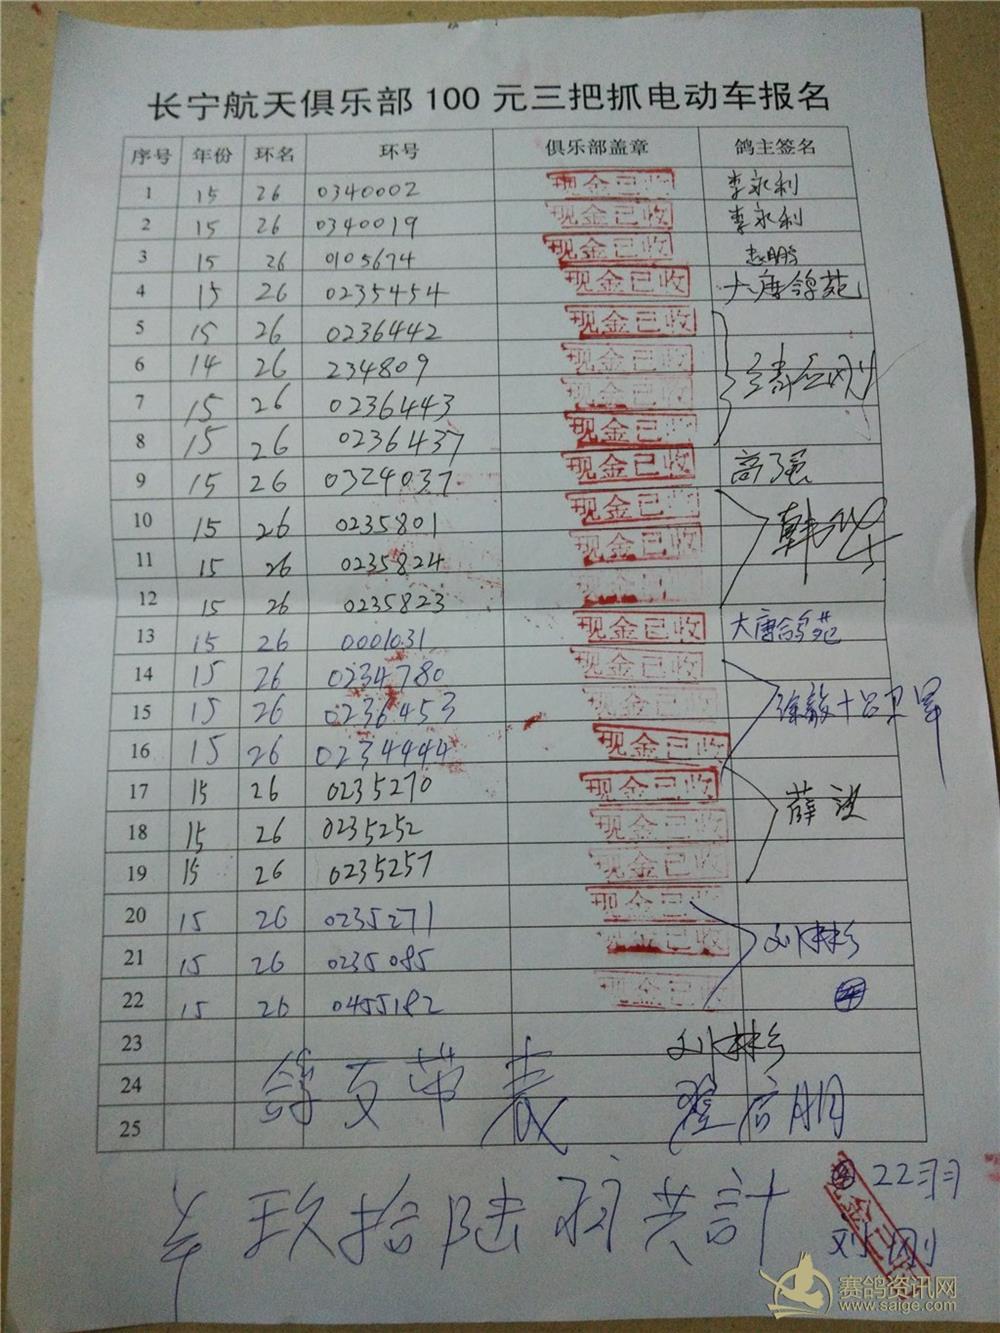 长宁航天俱乐部 100 元三把抓电动车报名
序号 年份 环名 环号 俱乐部盖章 鸽主签名
1 15 26 0340002 现金已收 李永利
2 15 26 0340019 现金已收 李永利
3 15 26 0105674 现金已收 赵鹏
4 15 26 0235454 现金已收 大唐鸽苑
5 15 26 0236442 现金已收
6 14 26 234809 现金已收
7 15 26 0236443 现金已收
8 15 26 0236437 现金已收
9 15 26 0324037 现金已收 高强
10 15 26 0235801 现金已收
11 15 26 0235824 现金已收
12 15 26 0235823
13 15 26 0001031 现金已收 大唐鸽苑
14 15 26 0234780 现金已收
15 15 26 0236453 现金已收
16 15 26 0234444 现金已收
17 15 26 0235270 现金已收
18 15 26 0235252 现金已收 薛
19 15 26 0235257 现金已收
20 15 26 0235271 现金已收
21 15 26 0235085 现金已收 刘林杉
22 15 26 0455182 现金已收
23 刘林杉
24 鸽友带表
25
22羽
玖拾陆羽共計
刘刚
赛鸽资讯网
www.saige.com